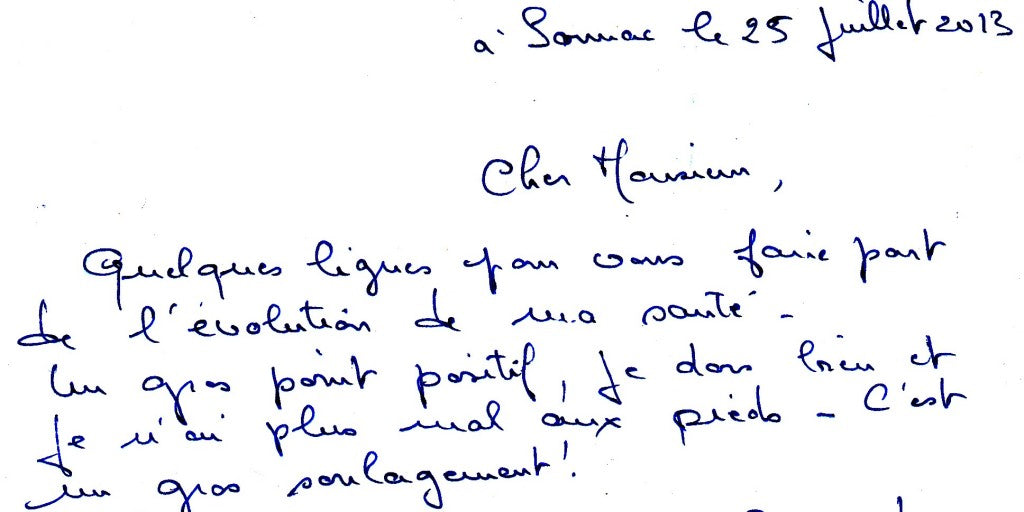 à Sonnac le 25 Juillet 2013
Cher Monsieur,
Quelques lignes pour vous faire part
de l'évolution de ma santé -
Un gros point positif, Je dors bien et
Je n'ai plus mal aux pieds - C'est
un gros soulagement !